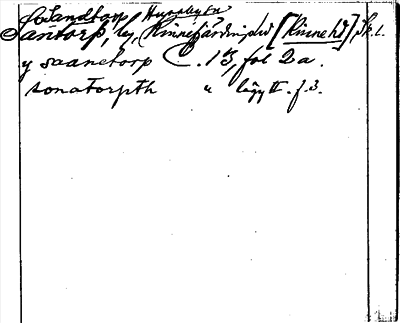 Sandtorp
Santorp, by, Kinnefjärdings hd [Kinne hd], Sk. l.
y saanetorp C. 13, fol 2 a.
sonatorpth " lägg II. f. 3.